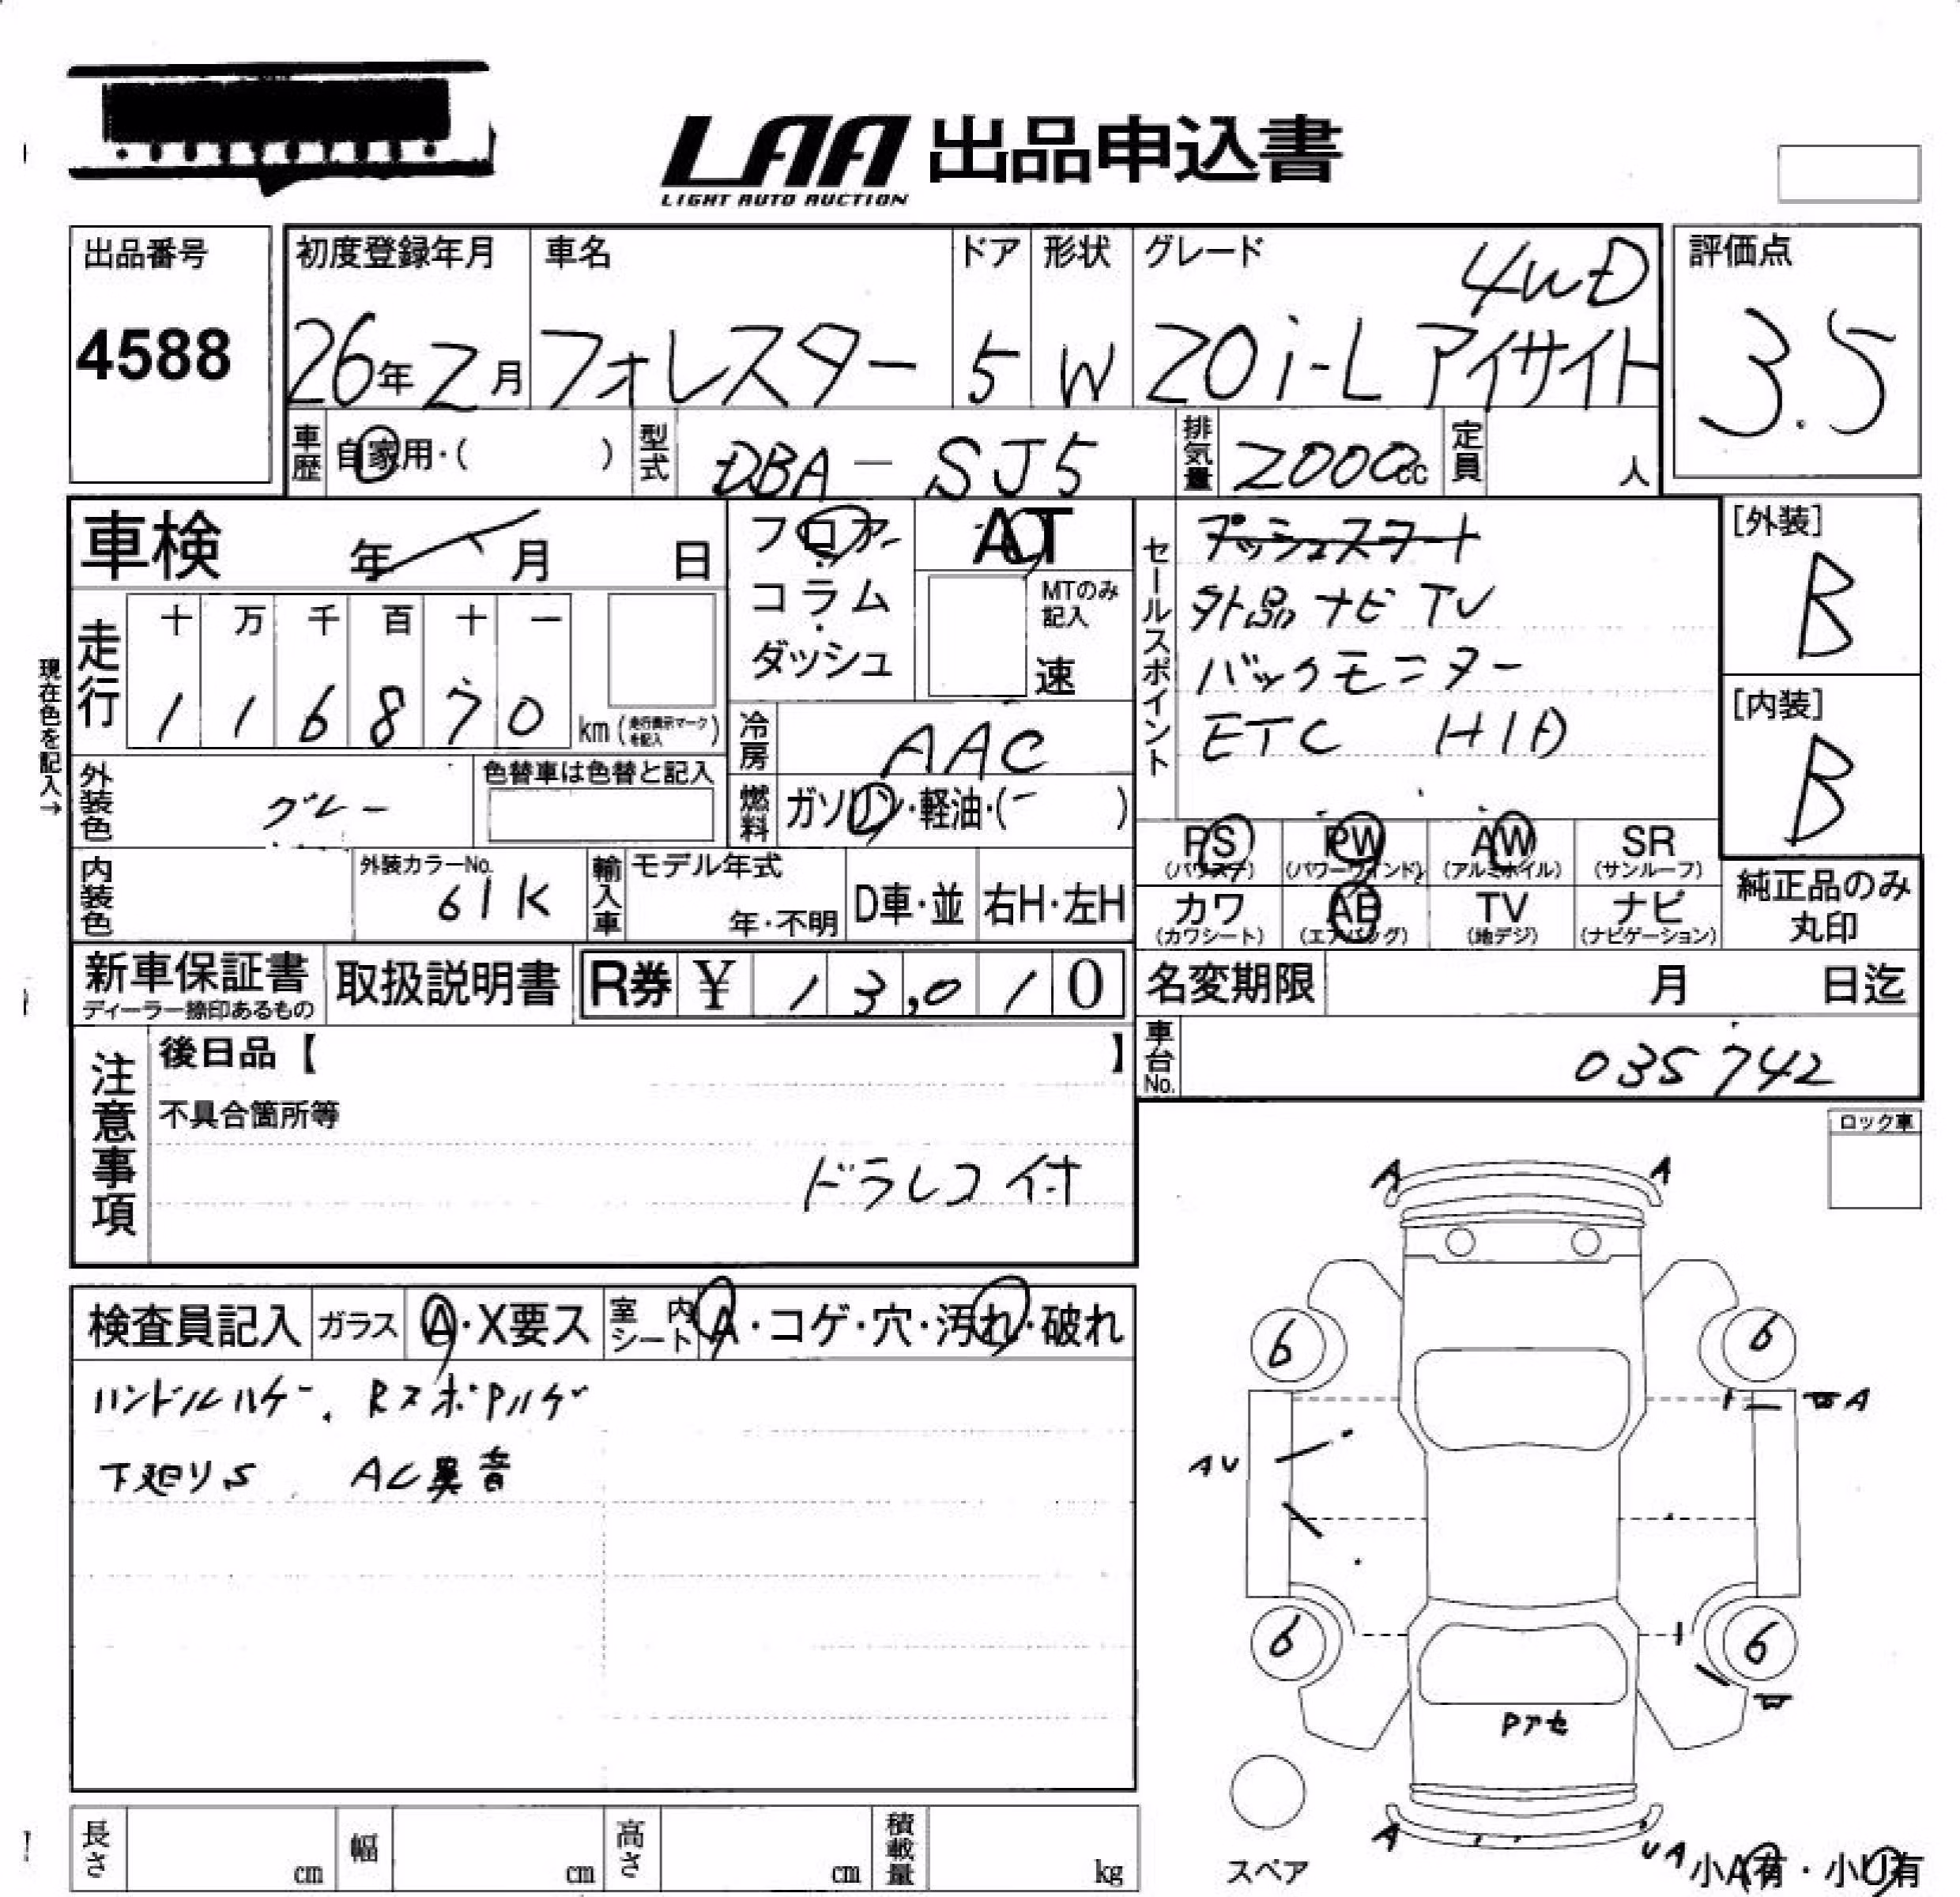 LAA 出品申込書
LIGHT AUTO AUCTION
出品番号
4588
初度登録年月
26年2月
車名
フォレスター
ドア
5
形状
W
グレード
4WD
20i-L アイサイト
評価点
3.5
車歴
自家用・( )
型式
DBA-SJ5
排気量
2000cc
定員
人
車検 年 月 日
フロア
コラム
ダッシュ
AT
MTのみ記入
速
セールスポイント
プッシュスタート
外品ナビTV
バックモニター
ETC HID
[外装]
B
[内装]
B
現在色を記入→
走行
十 万 千 百 十 一
1 1 6 8 7 0
km (走行表示マークを記入)
冷房
AAC
外装色
グレー
色替車は色替と記入
燃料
ガソリン・軽油・( )
PS PW AW SR
(パワステ) (パワーウインド) (アルミホイル) (サンルーフ)
カワ AB TV ナビ
(カワシート) (エアバッグ) (地デジ) (ナビゲーション)
純正品のみ
丸印
内装色
外装カラーNo.
61K
輸入車
モデル年式
年・不明
D車・並
右H・左H
新車保証書
ディーラー捺印あるもの
取扱説明書
R券 ¥ 13,010
名変期限 月 日迄
車台No.
035742
注意事項
後日品【 】
不具合箇所等
ドラレコ付
ロック車
検査員記入
ガラス
A・X要ス
室内シート
A・コゲ・穴・汚れ・破れ
ハンドルハゲ、RスポPハゲ
下廻りS AC異音
A A
6 6
W A
A U
6 6
W
Pアセ
A
U A
スペア
小A有・小U有
長さ cm
幅 cm
高さ cm
積載量 kg